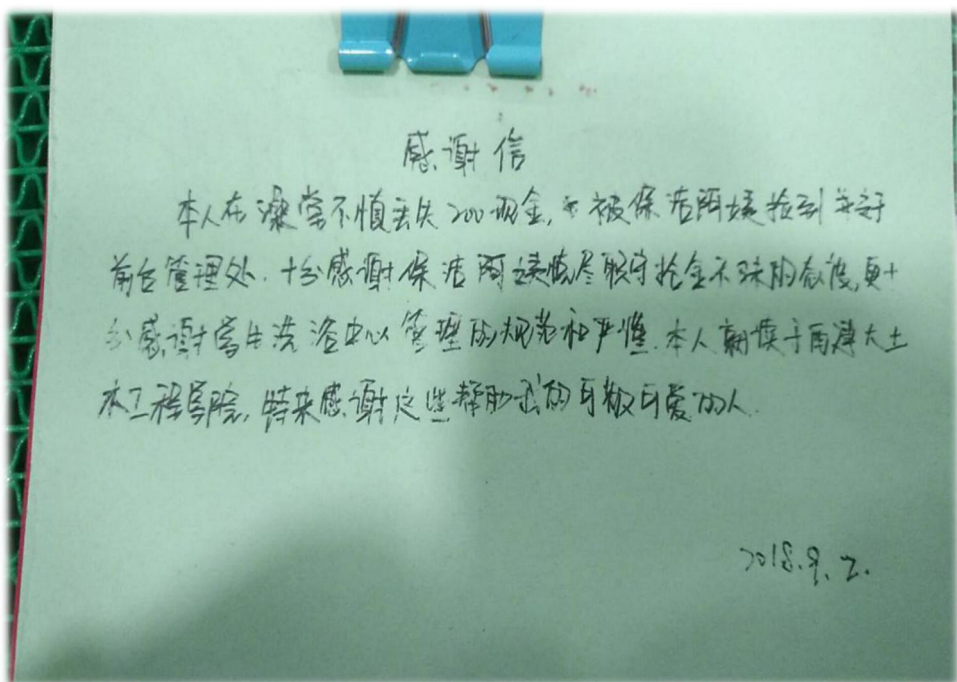 感谢信
本人在澡堂不慎丢失200现金,被保洁阿姨捡到并交于
前台管理处.十分感谢保洁阿姨恪尽职守拾金不昧的态度,更十
分感谢学生洗浴中心管理的规范和严谨.本人就读于西建大土
木工程学院,特来感谢这些帮助我的可敬可爱的人.
2018.9.2.